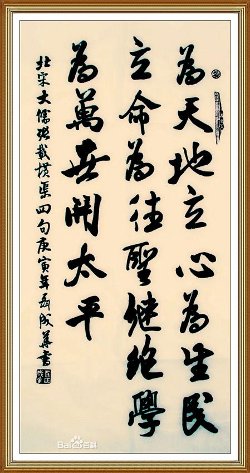 為天地立心為生民
立命為往聖繼絶學
為萬世開太平
北宋大儒張載橫渠四句庚寅年聶成華書
Bai百科